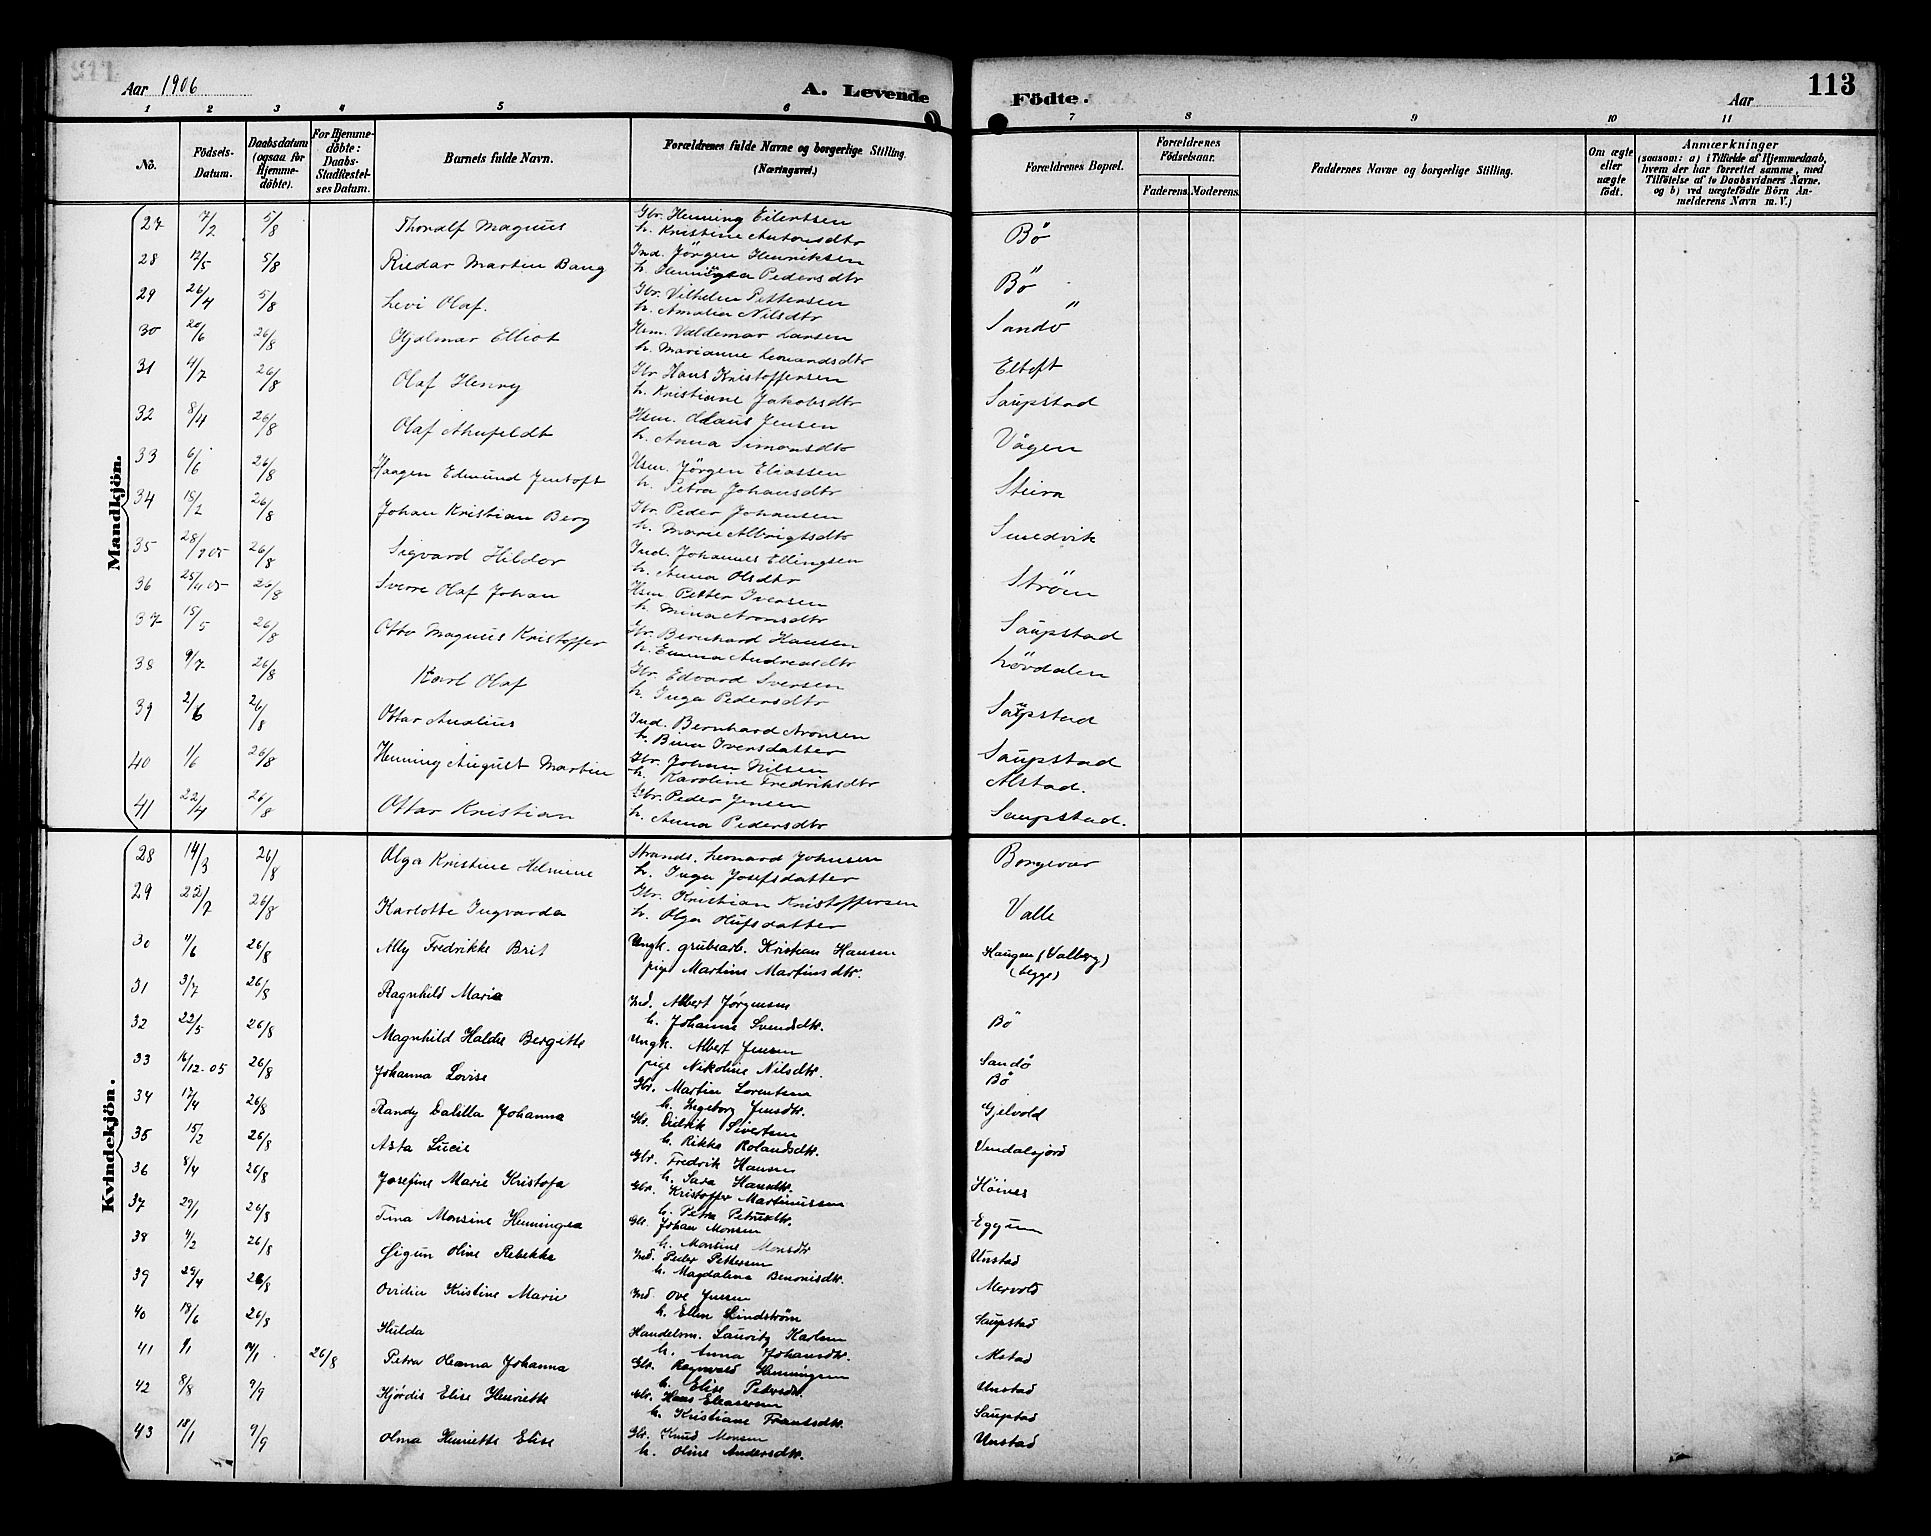 Aar 1906
A. Levende
Födte.
Aar
113
1 2 3 4 5 6 7 8 9 10 11
No.
Födsels-Datum.
Daabsdatum (ogsaa for Hjemme-döbte).
For Hjemme-döbte: Daabs-Stadfæstel-ses Datum.
Barnets fulde Navn.
Forældrenes fulde Navne og borgerlige Stilling. (Næringsvei.)
Forældrenes Bopæl.
Forældrenes Födselsaar.
Faderens. Moderens.
Faddernes Navne og borgerlige Stilling.
Om ægte eller uægte födt.
Anmærkninger
(saasom: a) i Tilfælde af Hjemmedaab, hvem der har forrettet samme, med Tilföielse af to Daabsvidners Navne, og b) ved uægtefödte Börn An-melderens Navn m. V.)
Mandkjön.
27 7/2 5/8 Thoralf Magnus Gbr. Henning Eilertsen
h. Kristine Antonsdtr Bö
28 12/5 5/8 Riedar Martin Bang Ind. Jörgen Henriksen
h. Pedersdtr Bö
29 26/4 5/8 Levi Olaf. Gbr. Vilhelm Pettersen
h. Amalia Nilsdtr Sandö
30 20/6 26/8 Hjalmar Elliot Hsm. Valdemar Larsen
h. Marianne Leonardsdtr Eltoft
31 4/7 26/8 Olaf Henry Gbr Hans Kristoffersen
h. Kristiane Jakobsdtr Saupstad
32 8/4 26/8 Olaf Ahnfeldt Hsm. Claus Jensen
h. Anna Simonsdtr Vågen
33 6/6 26/8 Haagen Edmund Jentoft Hsm. Jörgen Eliassen
h. Petra Johansdtr Steira
34 15/2 26/8 Johan Kristian Berg Gbr. Peder Johansen
h. Marie Albrigtsdtr Smedvik
35 28/9 05 26/8 Sigvard Hildor Ind. Johannes Ellingsen
h. Anna Olsdtr Ström
36 25/4 05 26/8 Sverre Olaf Johan Hsm Petter Iversen
h. Mina Aronsdtr Saupstad
37 15/5 26/8 Otto Magnus Kristoffer Gbr. Bernhard Hansen
h. Emma Andreasdtr Lövdalen
38 9/7 26/8 Karl Olaf Gbr Edvard Iversen
h. Inga Pedersdtr Saupstad
39 2/6 26/8 Ottar Ind. Bernhard Aronsen
h. Bina Iversdatter Saupstad
40 1/6 26/8 Henning August Martin Gbr. Johan Nilsen
h. Karoline Fredriksdtr Alstad.
41 22/4 26/8 Ottar Kristian Gbr. Peder Jensen
h. Anna Pedersdtr Saupstad.
Kvindekjön.
28 14/3 26/8 Olga Kristine Helmine Strands. Leonard Johnsen
h. Inga Josefsdatter Borgevær
29 22/7 26/8 Karlotte Ingvarda Gbr. Kristian Kristoffersen
h. Olga Olufsdatter Valle
30 4/6 26/8 Ally Fredrikke Brit Ungk. grubearb. Kristian Hansen
pige Martine Martinsdtr. Haugen (Valberg)
(begge)
31 3/7 26/8 Ragnhild Maria Ind. Albert Jörgensen
h. Johanne Svendsdtr. Bö
32 22/5 26/8 Magnhild Haldis Bergitte Ungk. Albert Jensen
pige Nikoline Nilsdtr. Sandö
Bö
33 16/12-05 26/8 Johanna Lovise Gbr. Martin Lorentsen
h. Ingeborg Jensdtr. Gjelvold
34 17/4 26/8 Randy Dalilla Johanna Gbr. Didrik Sivertsen
h. Rikka Rolandsdtr. Vendalsjord
35 15/2 26/8 Asta Lucie Gbr. Fredrik Hansen
h. Sara Hansdtr. Höines
36 8/4 26/8 Josefine Marie Kristofa Gbr. Kristoffer Martinussen
h. Petra Petrusdtr. Eggum
37 29/1 26/8 Tina Monsine Henningea Gbr. Johan Monsen
h. Monsdtr Unstad
38 4/2 26/8 Sigun Oline Rebekka Ind. Peder Pettersen
h. Magdalena Benonisdtr. Mervold
39 29/4 26/8 Ovidie Kristine Marie Ind. Ove Jensen
h. Elen Lindström Saupstad
40 18/6 26/8 Hulda Handelsm. Lauritz Karlsen
h. Anna Johansdtr. Alstad
41 9/1 14/1 26/8 Petra Oleanna Johanna Gbr. Ragnvald Henningsen
h. Elise Pedersdtr. Unstad
42 8/8 9/9 Hjördis Elise Henriette Gbr. Hans Eliassen
h. Kristiane Frantsdtr. Saupstad
43 18/1 9/9 Olma Henriette Elise Gbr. Knud Monsen
h. Oline Andersdtr. Unstad